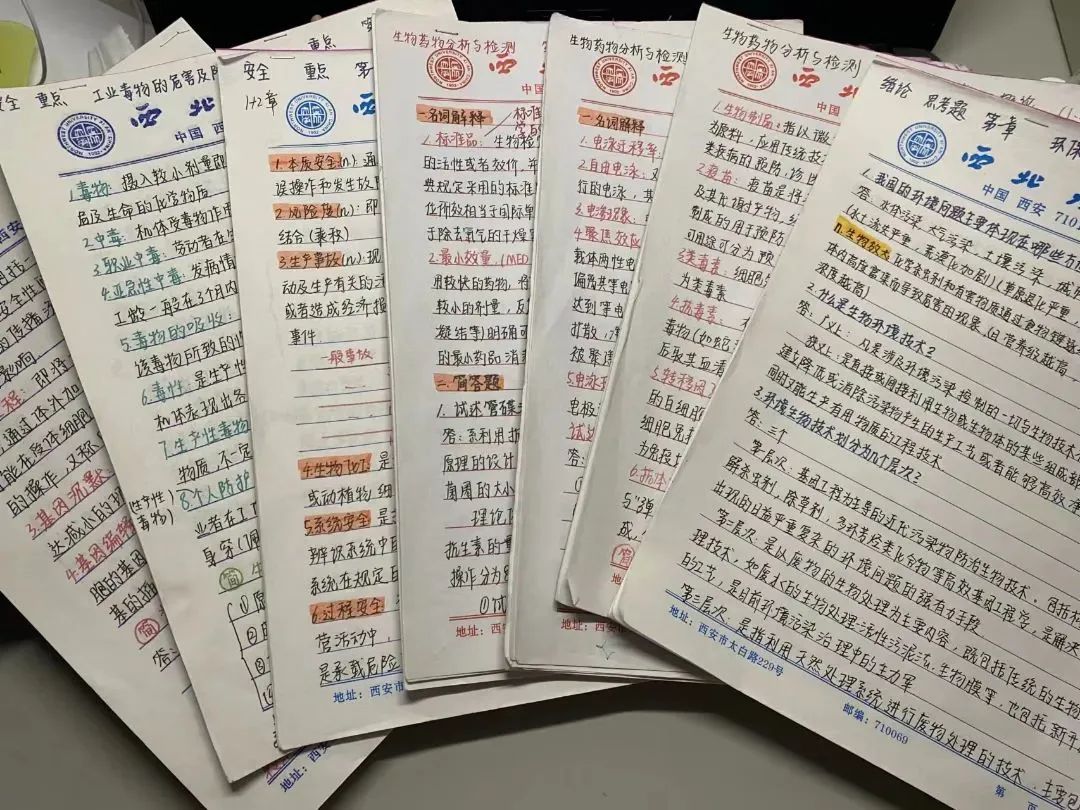 西安
程：即将
通过体外加
能在受体细胞
的操作，又称
3.基因沉默
达减小的
4.基因编辑
胞的基因
安全 重点 工业毒物的危害及防
西北
中国 西安
1.毒物：摄入较小剂量即
危及生命的化学物
2.中毒：机体受毒物作用后
3.职业中毒：劳动者在
4.亚急性中毒：发病情
工龄一般在3个月内
5.毒物的吸收：
该毒物所致的
6.毒性：是
机体表现出各
7.生产性毒物
物质，不一定
(生产性毒物)
8.个人防护
业者在工
简
地址：西安
安全 重点 第一
1+2章
西北
中国 西安
1.本质安全(n.) 通
误操作和发生故
2.危险度(n.)：即
结合(乘积)
3.生产事故(n.)：现
动及生产有关的
或者造成经济损
事件
一般事故
4.生物加工：是
或动植物细
5.系统安全：是
辨识系统中
系统在规定的
6.过程安全：
营活动中，
是承载危险
地址：西安市
生物药物分析与检测
西
中国
一.名词解释
1.标准品：生物检
的活性或者效价，并
典规定采用的标准
位效价相当于国际单
于除去氧气的干燥
2.最小效量(MED
用较快的药物，
较小的剂量，
凝结等)明确可
的最小药品消
二.简答题
1.试述管碟
答：系利用抗
原理的设计
菌圈的大小
理论
抗生素的量
操作分为
①试
地址：西安市
生物药物分析与检测
西
中国
一.名词解释
1.电泳迁移率
2.自由电泳：
行的电泳，其
3.电渗现象：
4.聚焦效应
载体两性电
偏角其等电
达到等电
扩散，
被聚焦
5.电泳
电极
试
答：
地址：西
生物药物分析与检测
西
中国
1.生物制品：指以微
为原料，应用传统技
类疾病的预防、
2.疫苗：疫苗是将
及其代谢产物，经
制成的用于预防
可用途可分为
3.类毒素：细胞
为类毒素
4.抗毒素：
毒物(如蛇
后取其血清
5.转移因子
的白细胞
细胞免
为免疫
6.抗体
与“弹
成，
简
绪论 思考题 第一章 环保
西北
中国 西安 710
1.我国的环境问题主要体现在哪些方面
答：水体污染、大气污染、土壤污染、城市
(水土流失严重，荒漠化加剧)(草原退化严重，
n.生物放大：化学农药剂和有害物质通过食物链逐
体内高度富集而导致危害的现象(且营养级越高，
浓度越高)
2.什么是生物环境技术？
答：广义：凡是涉及环境污染控制的一切与生物技术
狭义：是直接或间接利用生物或生物体的某些组成部
建立降低或消除污染物产生的生产工艺或者能够高效净
同时又能生产有用物质的工程技术
3.环境生物技术划分为几个层次？
答：三个
第一层次：基因工程为主导的近代污染物防治生物技术，包括
解杀虫剂，除草剂，多环芳烃类化合物等高效基因工程菌，是解决
出现的日益严重复杂的环境问题的强有力手段
第二层次：是以废物的生物处理为主要内容，既包括传统的生物
理技术，如废水的生物处理—活性污泥法、生物膜等，也包括新开
的工艺，是目前环境污染治理中的主力军
第三层次：是指利用天然处理系统进行废物处理的技术，主要包
地址：西安市太白路229号
邮编：710069
第 页